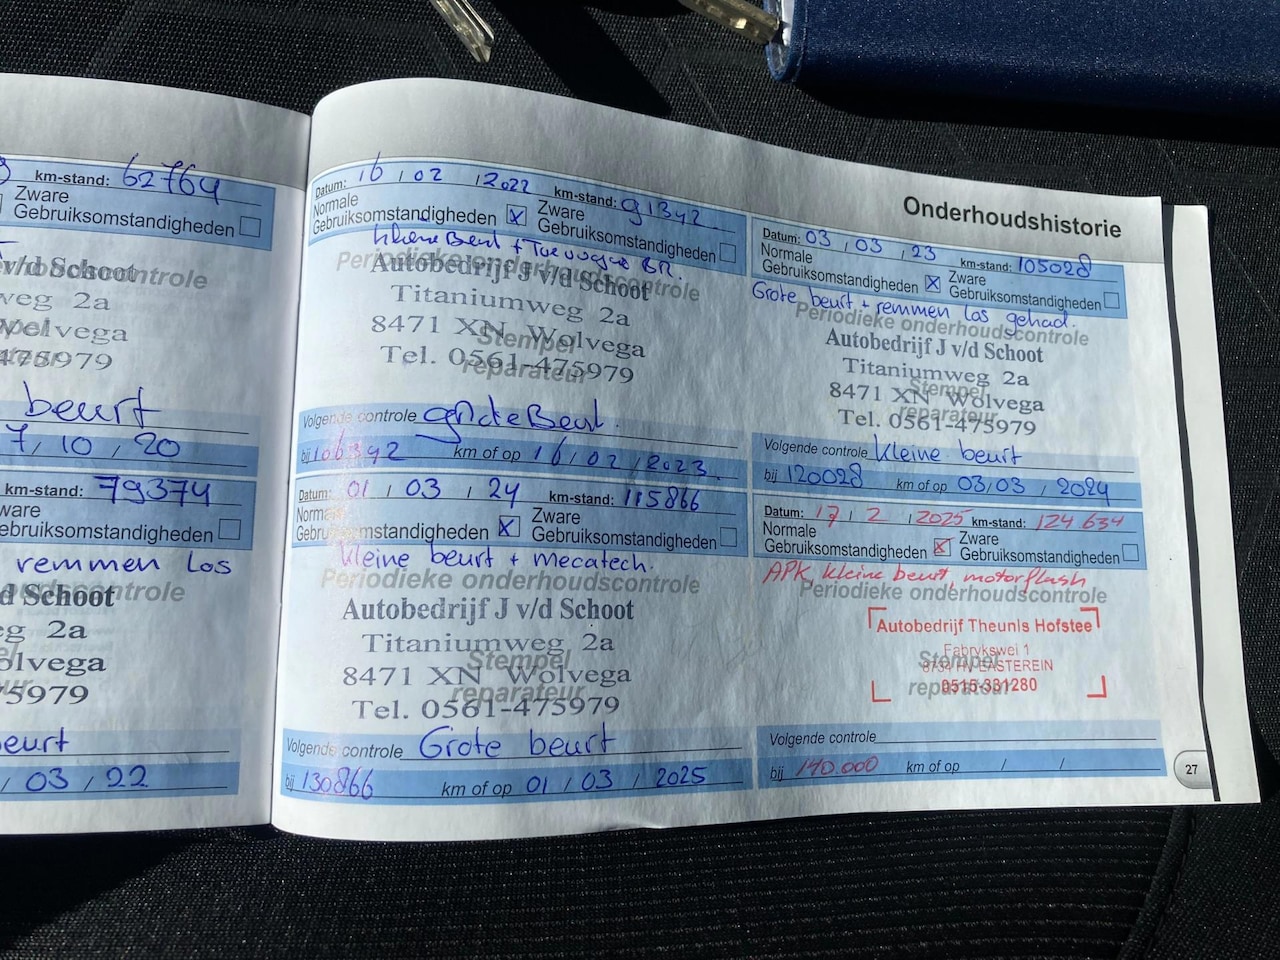 km-stand: 62764
Zware
Gebruiksomstandigheden
v/d Schoot
weg 2a
Wolvega
475979
beurt
7 / 10 / 20
km-stand: 79374
Zware
Gebruiksomstandigheden
remmen los
d Schoot
eg 2a
olvega
5979
beurt
/ 03 / 22
Datum: 16 / 02 / 2022 km-stand: 91392
Normale
Gebruiksomstandigheden X Zware
Gebruiksomstandigheden
kleine Beurt +
Periodieke onderhoudscontrole
Autobedrijf J v/d Schoot
Titaniumweg 2a
8471 XN Wolvega
Stempel
Tel. 0561-475979
reparateur
Volgende controle grote Beurt.
bij 106392 km of op 16 / 02 / 2023
Datum: 01 / 03 / 24 km-stand: 115866
Normale
Gebruiksomstandigheden X Zware
Gebruiksomstandigheden
kleine beurt + mecatech.
Periodieke onderhoudscontrole
Autobedrijf J v/d Schoot
Titaniumweg 2a
Stempel
8471 XN Wolvega
reparateur
Tel. 0561-475979
Volgende controle Grote beurt
bij 130866 km of op 01 / 03 / 2025
Onderhoudshistorie
Datum: 03 / 03 / 23 km-stand: 105028
Normale
Gebruiksomstandigheden X Zware
Gebruiksomstandigheden
Grote beurt + remmen los gehad.
Periodieke onderhoudscontrole
Autobedrijf J v/d Schoot
Titaniumweg 2a
Stempel
8471 XN Wolvega
reparateur
Tel. 0561-475979
Volgende controle kleine beurt
bij 120028 km of op 03 / 03 / 2024
Datum: 17 / 2 / 2025 km-stand: 124 634
Normale
Gebruiksomstandigheden X Zware
Gebruiksomstandigheden
APK, kleine beurt, motorflush
Periodieke onderhoudscontrole
Autobedrijf Theunis Hofstee
Fabrykswei 1
Stempel
8734 HV EASTEREIN
reparateur
0515-331280
Volgende controle
bij 140.000 km of op / /
27